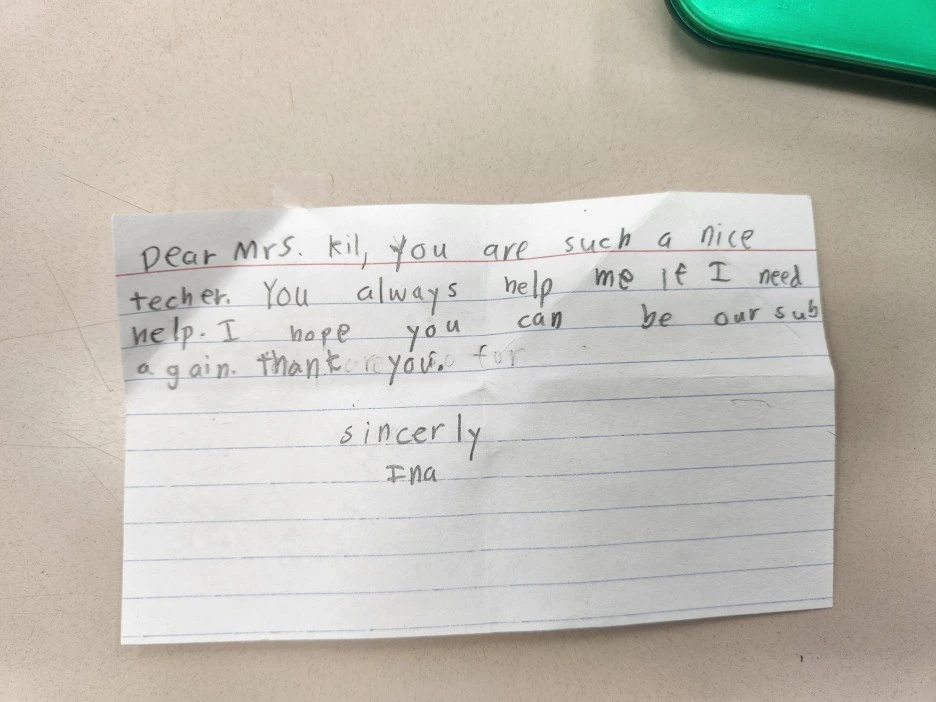 Dear Mrs. kil, You are such a nice
techer. You always help me if I need
help. I hope you can be our sub
again. thank you. for
sincerly
Ina